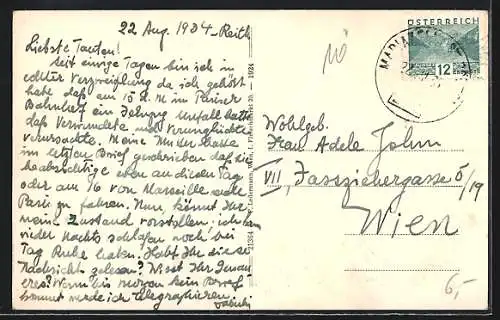 22 Aug. 1934 - Reith
Liebste Tanten!
Seit einige Tagen bin ich in
echter Verzweiflung da ich gehört
habe daß am 15 d. M. in Pariser
Bahnhof ein Fahrzug Unfall hatte
daß Verwundete und Verunglückte
verursachte. Meine Mutter hatte
im letzten Brief geschrieben daß sie
beabsichtige eben an dieser Tag
oder am 16 von Marseille nach
Paris zu fahren. Nun, könnt Ihr
mein Zustand vorstellen: ich kan
weder Nachts schlafen noch bei
Tag Ruhe haben. Habt Ihr diese
Nachricht gelesen? Wisst Ihr Genau
eres? Wenn bis morgen kein Brief
kommt werde ich telegraphieren
ÖSTERREICH
12
Wohlgeb.
Frau Adele John
VII, Fasszieherg­asse 5/19
Wien
6,-